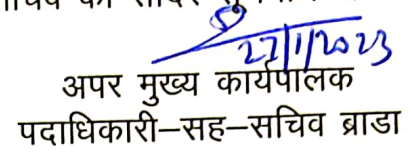 27/1/2023
अपर मुख्य कार्यपालक
पदाधिकारी–सह–सचिव ब्राडा